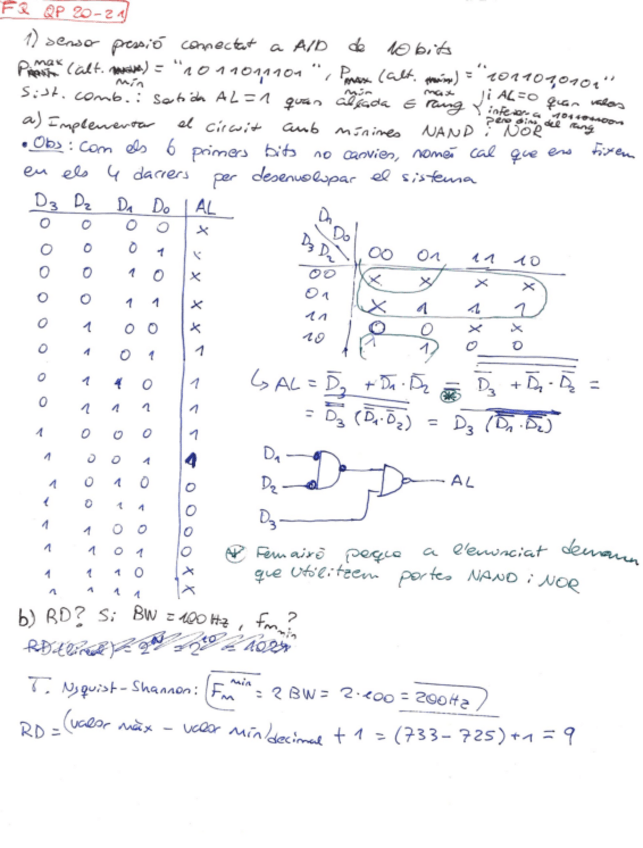 FQ QP 20-21
1) Sensor pressió connectat a A/D de 10 bits
P max (alt. min) = "1011011101", P min (alt. max) = "1011010101"
Sist. comb.: sortida AL=1 quan alçada ∈ rang i AL=0 quan valors
inferior a
però dins del rang
a) Implementar el circuit amb mínimes NAND i NOR
• Obs: Com els 6 primers bits no canvien, només cal que ens fixem
en els 4 darrers per desenvolupar el sistema
D3 D2 D1 D0 AL
0 0 0 0 x
0 0 0 1 x
0 0 1 0 x
0 0 1 1 x
0 1 0 0 x
0 1 0 1 1
0 1 1 0 1
0 1 1 1 1
1 0 0 0 1
1 0 0 1 1
1 0 1 0 0
1 0 1 1 0
1 1 0 0 0
1 1 0 1 0
1 1 1 0 x
1 1 1 1 x
D1 D0
D3 D2 00 01 11 10
00 x x x x
01 x 1 1 1
11 0 0 x x
10 1 1 0 0
↳ AL = D̅3 + D̅1·D̅2 = D̅3 + D̅1·D̅2 =
= D̅3 (D̅1·D̅2) = D3 (D̅1·D̅2)
D1
D2
D3
AL
* Fem això perquè a l'enunciat demana
que utilitzem portes NAND i NOR
b) RD? Si BW = 100 Hz, fm min?
T. Nyquist-Shannon: Fm min = 2 BW = 2·100 = 200Hz
RD = (valor màx - valor mín) decimal + 1 = (733-725)+1 = 9